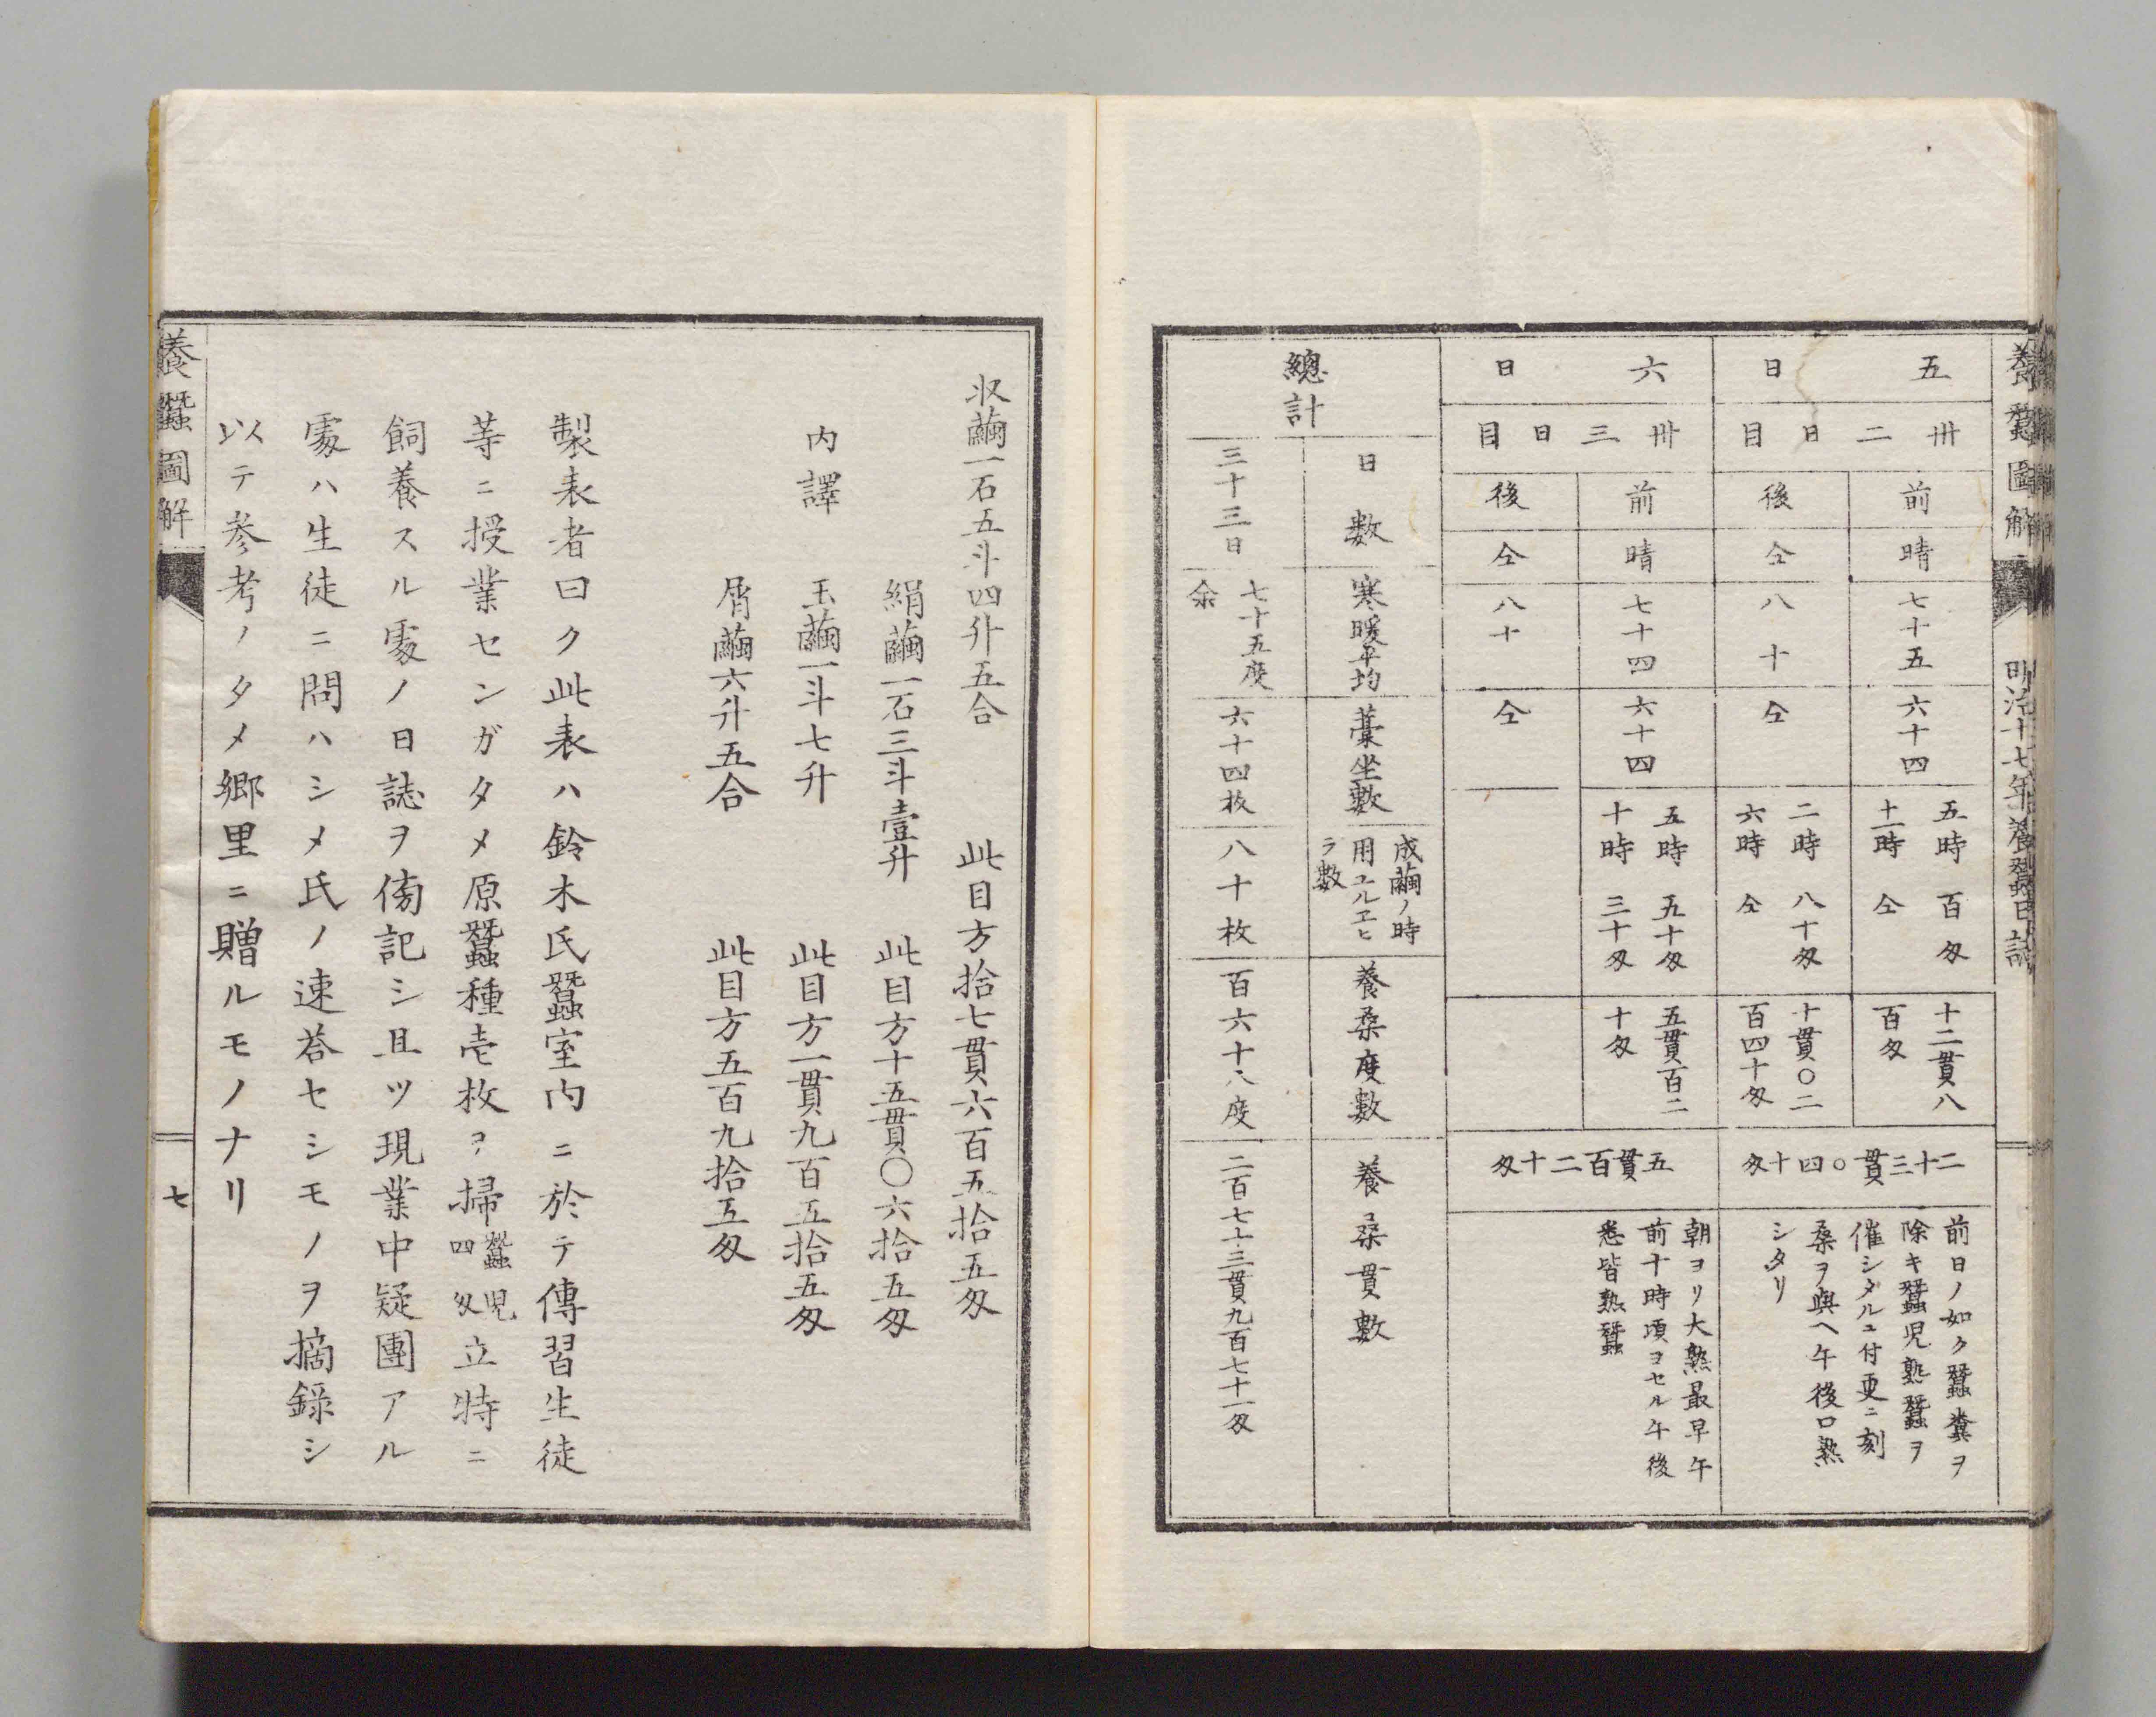 養蠶圖解
明治十七年養蠶日誌
五日
卅二日目
前
晴
七十五
六十四
五時 百匁
十一時 仝
十二貫八
百匁
後
仝
八十
仝
二時 八十匁
六時 仝
十貫〇二
百四十匁
二十三貫〇四十匁
前日ノ如ク蠶糞ヲ
除キ蠶児熟蠶ヲ
催シタルニ付更ニ刻
桑ヲ與ヘ午後口熟
シタリ
六日
卅三日目
前
晴
七十四
六十四
五時 五十匁
十時 三十匁
五貫百二
十匁
後
仝
八十
仝
五貫百二十匁
朝ヨリ大熟最早午
前十時頃ヨセル午後
悉皆熟蠶
總計
日數
寒暖平均
藁坐數
成繭ノ時
用ユルヱヒ
ラ數
養桑度數
養桑貫數
三十三日
七十五度
余
六十四枚
八十枚
百六十八度
二百七十三貫九百七十一匁
収繭一石五斗四升五合 此目方拾七貫六百五拾五匁
絹繭一石三斗壹升 此目方十五貫〇六拾五匁
内譯 玉繭一斗七升 此目方一貫九百五拾五匁
屑繭六升五合 此目方五百九拾五匁
製表者曰ク此表ハ鈴木氏蠶室内ニ於テ傳習生徒
等ニ授業センガタメ原蠶種壱枚ヲ掃蠶児四匁立特ニ
飼養スル處ノ日誌ヲ傍記シ且ツ現業中疑團アル
處ハ生徒ニ問ハシメ氏ノ速荅セシモノヲ摘録シ
以テ参考ノタメ郷里ニ贈ルモノナリ
養蠶圖解
七